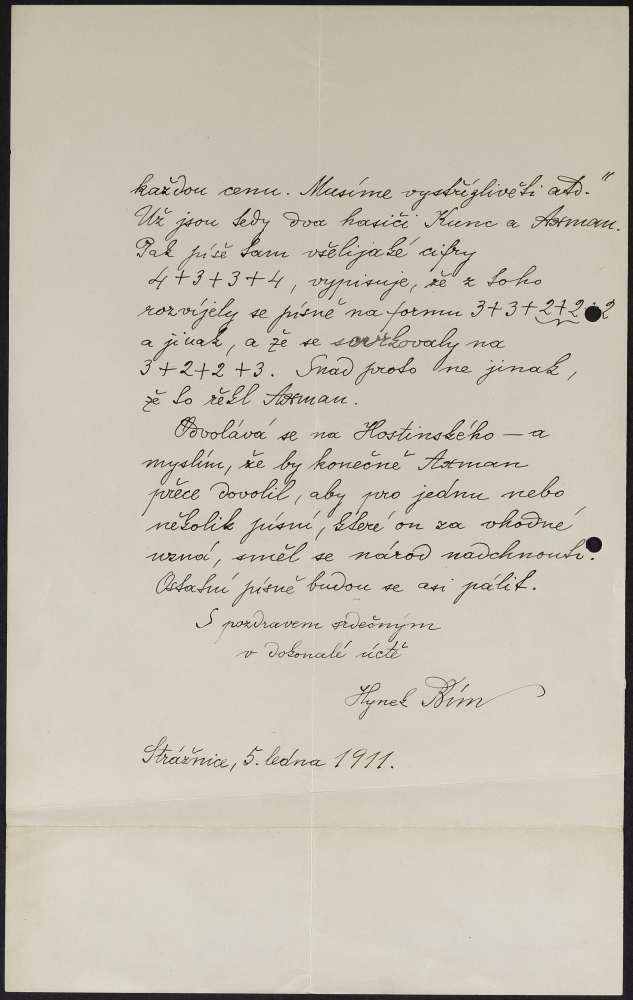 každou cenu. Musíme vystřízlivěti atd."
Už jsou tedy dva hasiči Kunc a Axman.
Pak píše tam všelijaké cifry
4+3+3+4, vypisuje, že z toho
rozvíjely se písně na formu 3+3+2+2+2
a jinak, a že se scvrkovaly na
3+2+2+3. Snad proto ne jinak,
že to řekl Axman.
Odvolává se na Hostinského — a
myslím, že by konečně Axman
přece dovolil, aby pro jednu nebo
několik písní, které on za vhodné
uzná, směl se národ nadchnouti.
Ostatní písně budou se asi pálit.
S pozdravem srdečným
v dokonalé úctě
Hynek Bím
Strážnice, 5. ledna 1911.